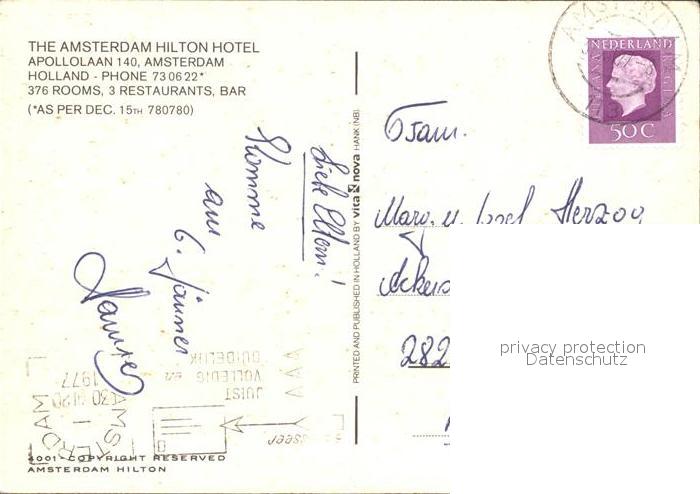 THE AMSTERDAM HILTON HOTEL
APOLLOLAAN 140, AMSTERDAM
HOLLAND - PHONE 73 06 22*
376 ROOMS, 3 RESTAURANTS, BAR
(*AS PER DEC. 15TH 780780)
Liebe Eltern!
Komme
am
6. Jänner
Hannes
PRINTED AND PUBLISHED IN HOLLAND BY vita nova HANK (NB)
AMSTERDAM
NEDERLAND
JULIANA REGINA
50 C
Fam.
Marg. u. Josef Herzog
282
privacy protection
Datenschutz
JUIST
VOLLEDIG en
DUIDELIJK
AMSTERDAM
1977
4001 - COPYRIGHT RESERVED
AMSTERDAM HILTON